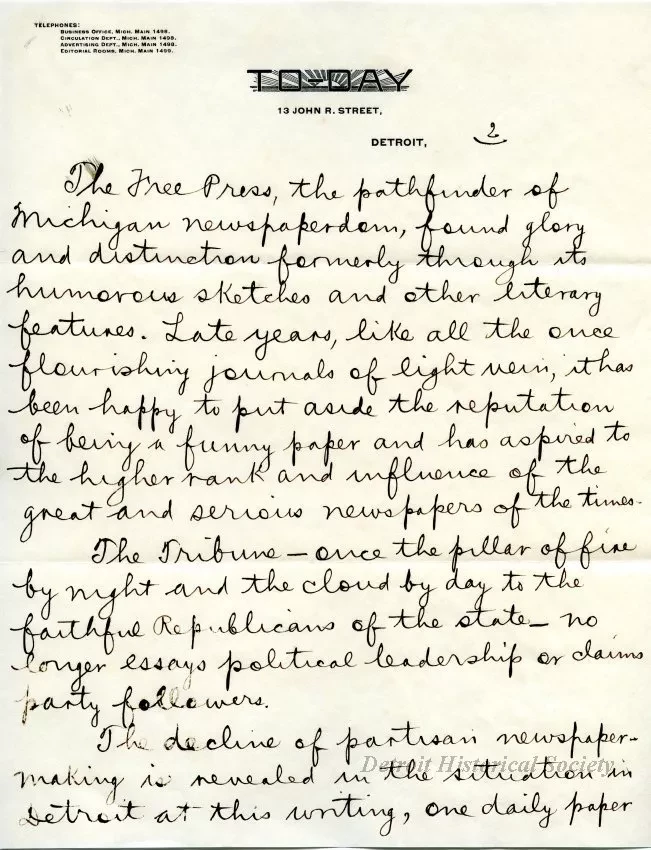 TELEPHONES:
BUSINESS OFFICE, MICH. MAIN 1498.
CIRCULATION DEPT., MICH. MAIN 1498.
ADVERTISING DEPT., MICH. MAIN 1498.
EDITORIAL ROOMS, MICH. MAIN 1499.
TO-DAY
13 JOHN R. STREET,
DETROIT, 2
The Free Press, the pathfinder of
Michigan newspaperdom, found glory
and distinction formerly through its
humorous sketches and other literary
features. Late years, like all the once
flourishing journals of light vein, it has
been happy to put aside the reputation
of being a funny paper and has aspired to
the higher rank and influence of the
great and serious newspapers of the times.
The Tribune — once the pillar of fire
by night and the cloud by day to the
faithful Republicans of the state — no
longer essays political leadership or claims
party followers.
The decline of partisan newspaper-
making is revealed in the situation in
Detroit at this writing, one daily paper
Detroit Historical Society